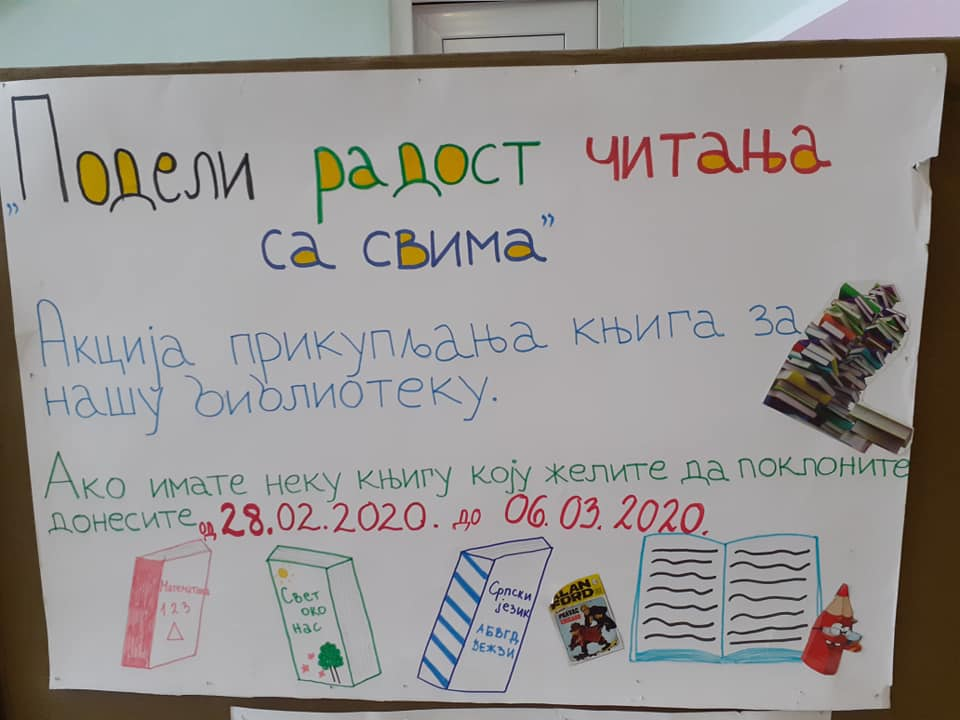 „Подели радост читања
са свима”
Акција прикупљања књига за
нашу библиотеку.
Ако имате неку књигу коју желите да поклоните
донесите од 28.02.2020. до 06.03.2020.
Математика
1 2 3
Свет
око
нас
Српски
језик
АБВГД
ЂЕЖЗИ
ALAN
FORD